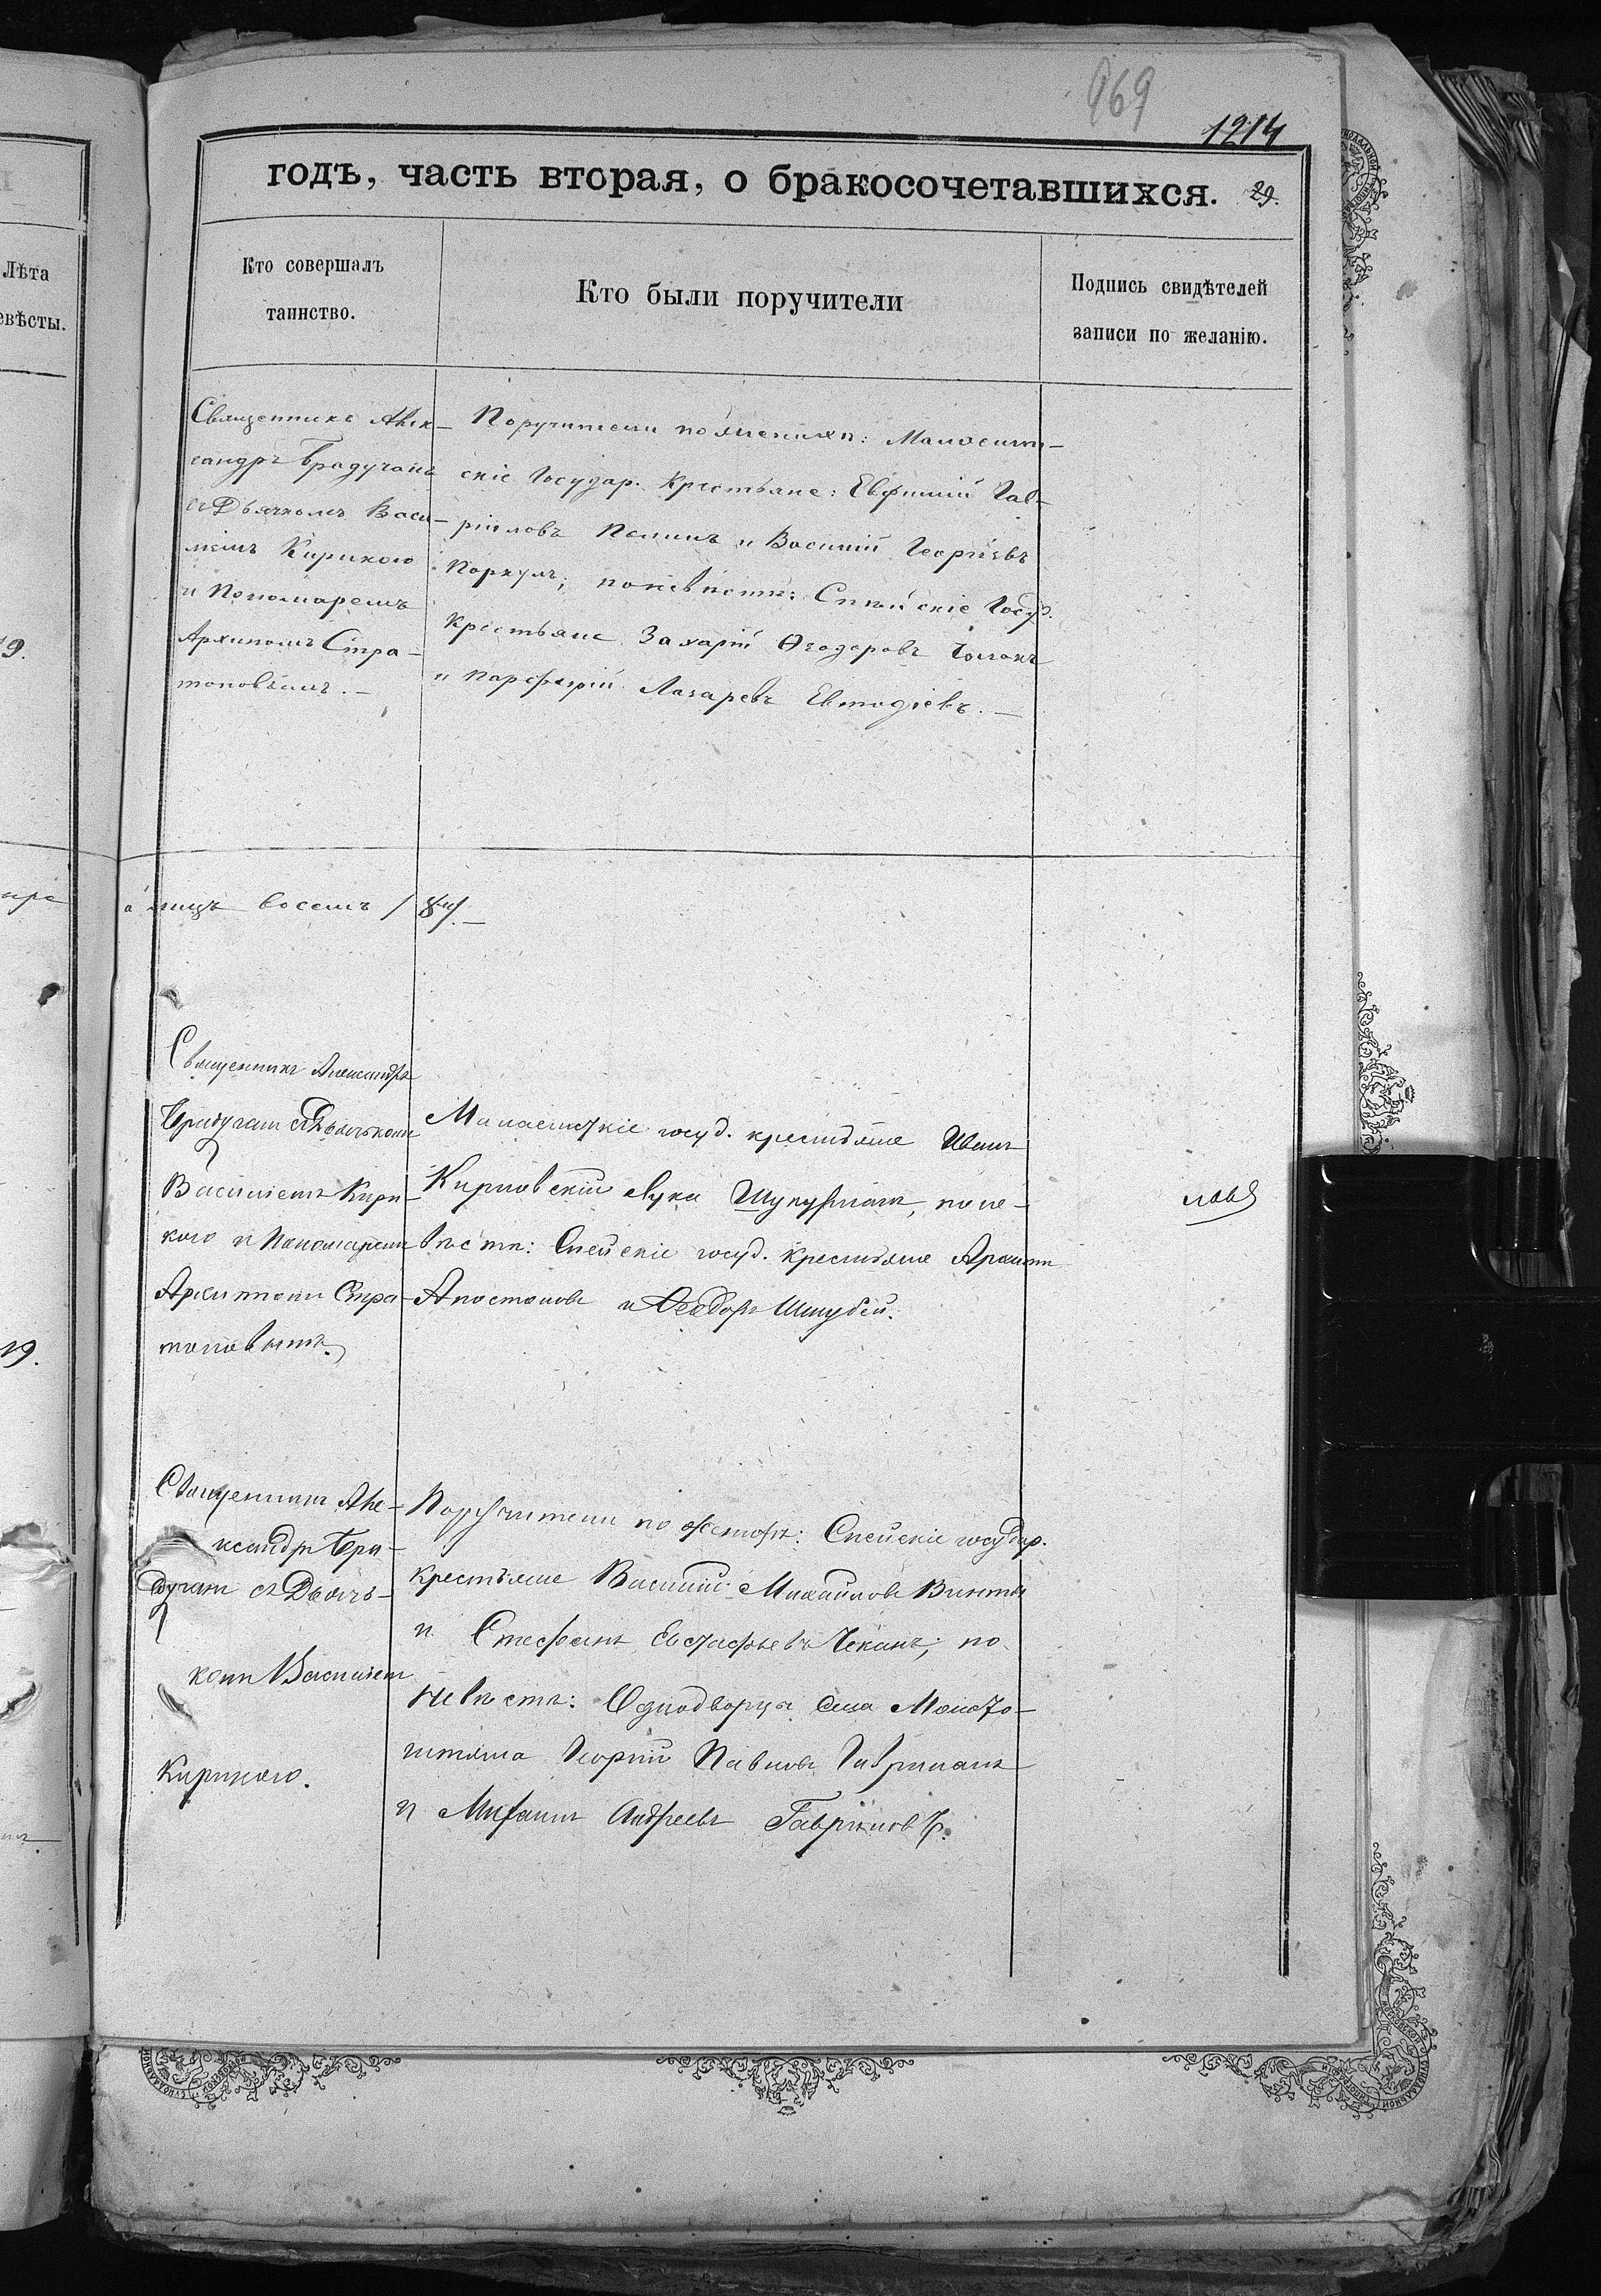 969
1214
годъ, часть вторая, о бракосочетавшихся. 29.
Лѣта
евѣсты.
Кто совершалъ
таинство.
Кто были поручители
Подпись свидѣтелей
записи по желанію.
Священникъ Алек-
сандръ Брадучанъ
съ Дьячкомъ Васи-
лiемъ Кирикою
и Пономаремъ
Архипомъ Стра-
тоновымъ.—
Поручители по женихѣ:
скіе Государ. Крестьяне: Евфимій Гав-
ріиловъ и Василій Георгіевъ
по невѣстѣ: Спейскіе Госуд.
Крестьяне Захарій Ѳеодоровъ
и Парфирій Лазаревъ Евтодіевъ.—
9.
а лицъ восемъ /8/.—
Священникъ Александръ
Брадучанъ съ Дьячькомъ
Василіемъ Кири-
кою и Пономаремъ
Архипомъ Стра-
тоновымъ.
госуд. крестьяне Иванъ
Кирповскій Лука по не-
вѣстѣ: Спейскіе госуд. крестьяне
Апостоловъ и Ѳеодоръ
19.
Священникъ Але-
ксандръ Бра-
дучанъ съ Дьячь-
комъ Василіемъ
Кирикою.
Поручители по женихѣ: Спейскіе государ.
крестьяне Василій Михайловъ
и Стефанъ Евстафьевъ Чеканъ; по
невѣстѣ: Однодворцы села
Георгій Павловъ
и Михаилъ Андреевъ Гавриловъ.